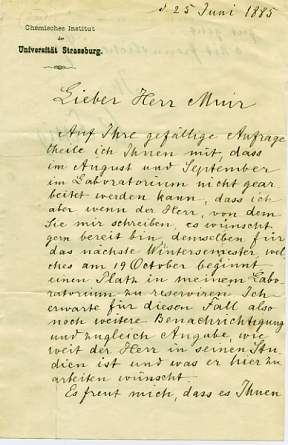 d. 25 Juni 1885
Chemisches Institut
der
Universität Strassburg.
Lieber Herr Muir
Auf Ihre gefällige Anfrage
theile ich Ihnen mit, dass
im August und September
im Laboratorium nicht gear
beitet werden kann, dass ich
aber wenn der Herr, von dem
Sie mir schreiben, es wünscht
gern bereit bin, demselben für
das nächste Wintersemester wel
ches am 19 October beginnt
einen Platz in meinem Labo-
ratorium zu reserviren. Ich
erwarte für diesen Fall also
noch weitere Benachrichtigung
und zugleich Angabe, wie
weit der Herr in seinen Stu
dien ist und was er hier zu
arbeiten wünscht.
Es freut mich, dass es Ihnen